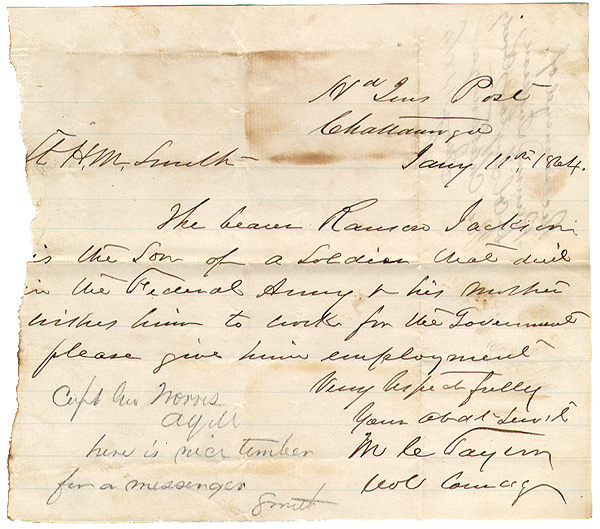 Hd Qrs Post
Chattanooga
Lt H. M. Smith
Jany 11th 1864.
The bearer Ransom Jackson
is the Son of a Soldier that died
in the Federal Army & his mother
wishes him to work for the Government
please give him employment
Very Respectfully
Your Obdt Servt
M C Taylor
Col Comdg
Capt Geo Norris
AQM
here is nice timber
for a messenger
Smith